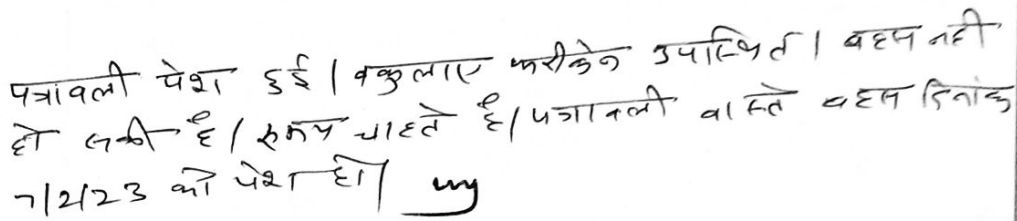 पत्रावली पेश हुई। वकुलाए फरीकेन उपस्थित। बहस नही
हो सकी है। समय चाहते है। पत्रावली वास्ते बहस दिनांक
7/2/23 को पेश हो।